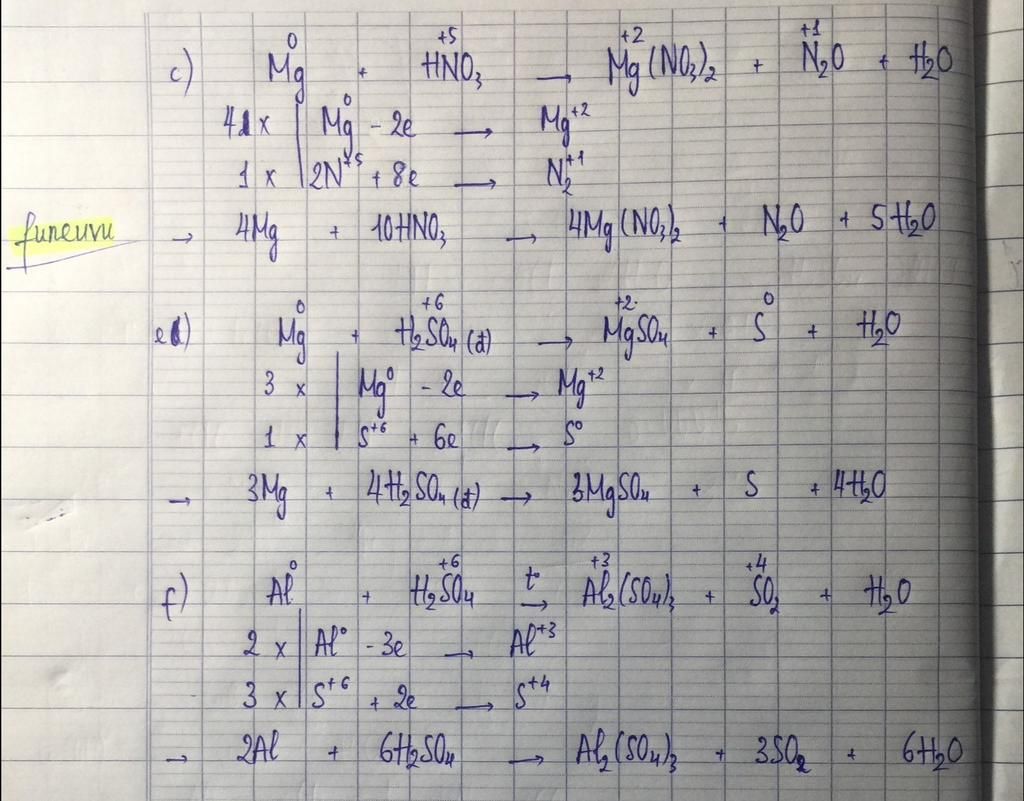 c) Mg⁰ + HN⁺⁵O₃ → Mg⁺²(NO₃)₂ + N₂⁺¹O + H₂O
4 x | Mg⁰ - 2e → Mg⁺²
1 x | 2N⁺⁵ + 8e → N₂⁺¹
→ 4Mg + 10HNO₃ → 4Mg(NO₃)₂ + N₂O + 5H₂O
e) Mg⁰ + H₂S⁺⁶O₄ (đ) → Mg⁺²SO₄ + S⁰ + H₂O
3 x | Mg⁰ - 2e → Mg⁺²
1 x | S⁺⁶ + 6e → S⁰
→ 3Mg + 4H₂SO₄ (đ) → 3MgSO₄ + S + 4H₂O
f) Al⁰ + H₂S⁺⁶O₄ t° → Al₂⁺³(SO₄)₃ + S⁺⁴O₂ + H₂O
2 x | Al⁰ - 3e → Al⁺³
3 x | S⁺⁶ + 2e → S⁺⁴
→ 2Al + 6H₂SO₄ → Al₂(SO₄)₃ + 3SO₂ + 6H₂O